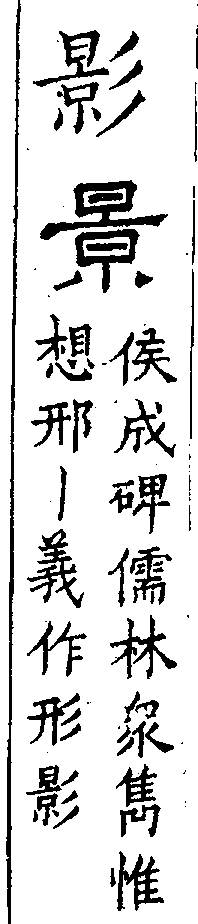 影
景
侯成碑儒林眾雋惟
想邢丨義作形影